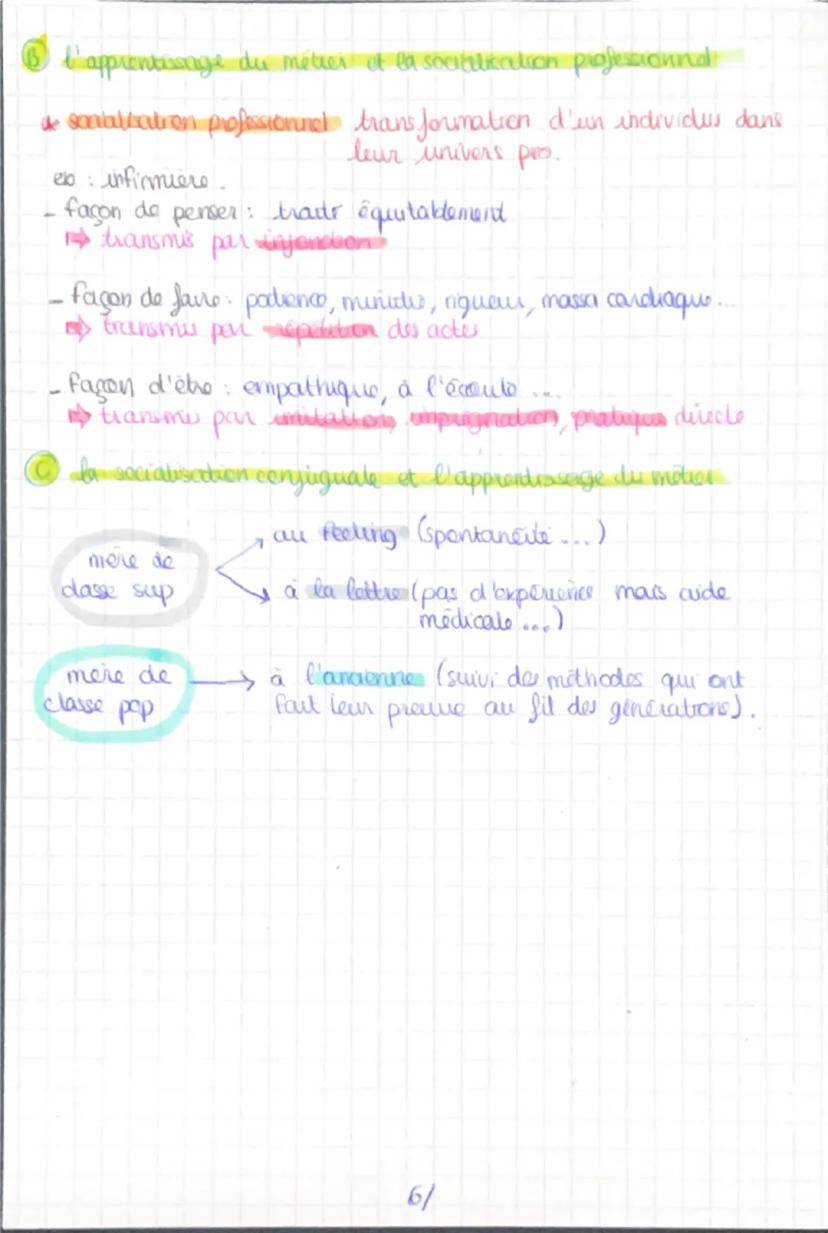 B l'apprentissage du métier et la socialisation professionnel
* socialisation professionnel transformation d'un individus dans
leur univers pro.
ex : infirmière.
- façon de penser : traiter équitablement
⇒ transmis par injonction
- façon de faire : patience, minutie, rigueur, massa cardiaque...
⇒ transmis par répétition des actes
- façon d'être : empathique, à l'écoute ...
⇒ transmis par imitation, imprégnation, pratique directe
C la socialisation conjuguale et l'apprentissage du métier
mère de
classe sup
au feeling (spontanéité ...)
à la lettre (pas d'expérience mais aide
médicale ...)
mère de
classe pop
→ à l'ancienne (suivi des méthodes qui ont
fait leur preuve au fil des générations).
6/